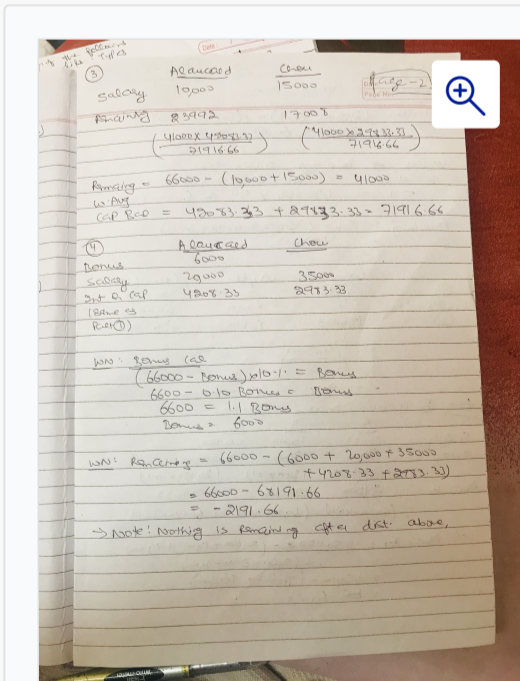 the following
like types
Date
Page - 2
Page No.
③ Alaucard Chou
Salary 10,000 15000
Remaining 23992 17008
(41000 x 42083.33 / 71916.66) (41000 x 29833.33 / 71916.66)
Remaining = 66000 - (10,000 + 15000) = 41000
W. Avg
Cap Bal = 42083.33 + 29833.33 = 71916.66
④ Alaucard Chou
Bonus 6000
Salary 20,000 35000
Int on Cap 4208.33 2983.33
(Same as
Part ①)
WN: Bonus Cal
(66000 - Bonus) x 10% = Bonus
6600 - 0.10 Bonus = Bonus
6600 = 1.1 Bonus
Bonus = 6000
WN: Remaining = 66000 - (6000 + 20,000 + 35000
+ 4208.33 + 2983.33)
= 66000 - 68191.66
= - 2191.66
→ Note: Nothing is Remaining after dist. above,